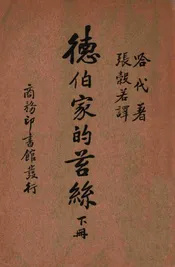 哈代 著
張穀若譯
德伯家的苔絲
下冊
商務印書館發行